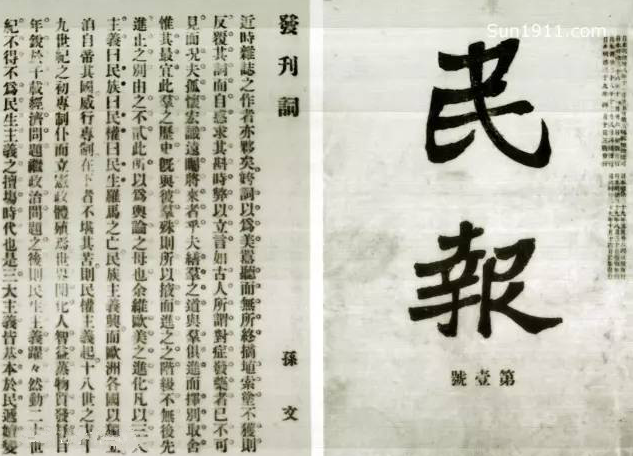 Sun1911.com
民報
第壹號
發刊詞
孫文
近時雜誌之作者亦夥矣姱詞以爲美囂聽而無所終摘埴索塗不獲則
反覆其詞而自惑求其斟時弊以立言如古人所謂對症發藥者已不可
見而況夫孤懷宏識遠矚將來者乎夫繕羣之道與羣俱進而擇別取舍
惟其最宜此羣之歷史旣與彼羣殊則所以掖而進之之階級不無後先
進止之別由之不貳此所以爲輿論之母也余維歐美之進化凡以三大
主義曰民族曰民權曰民生羅馬之亡民族主義興而歐洲各國以獨立
洎自帝其國威行專制在下者不堪其苦則民權主義起十八世之末十
九世紀之初專制仆而立憲政體殖焉世界開化人智益蒸物質發舒百
年銳於千載經濟問題繼政治問題之後則民生主義躍々然動二十世
紀不得不爲民生主義之擅場時代也是三大主義皆基本於民遞嬗變